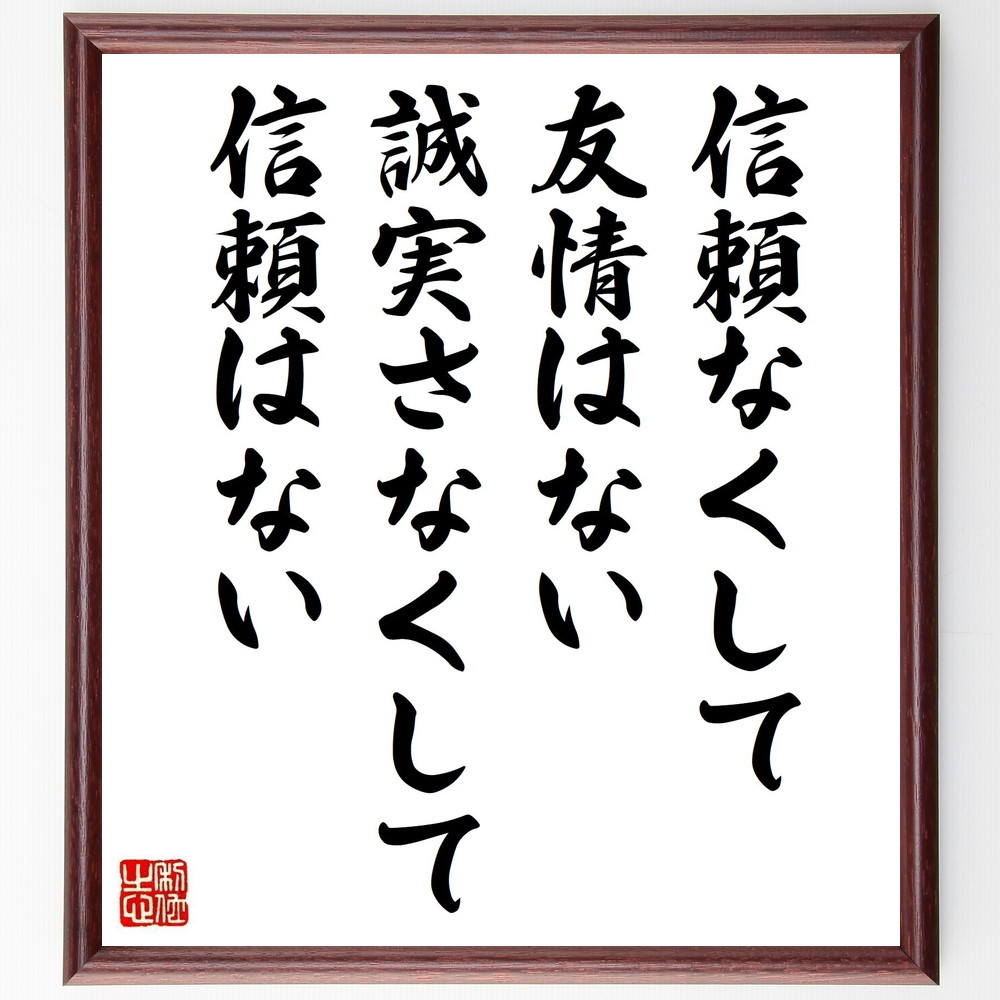 信頼なくして
友情はない
誠実さなくして
信頼はない